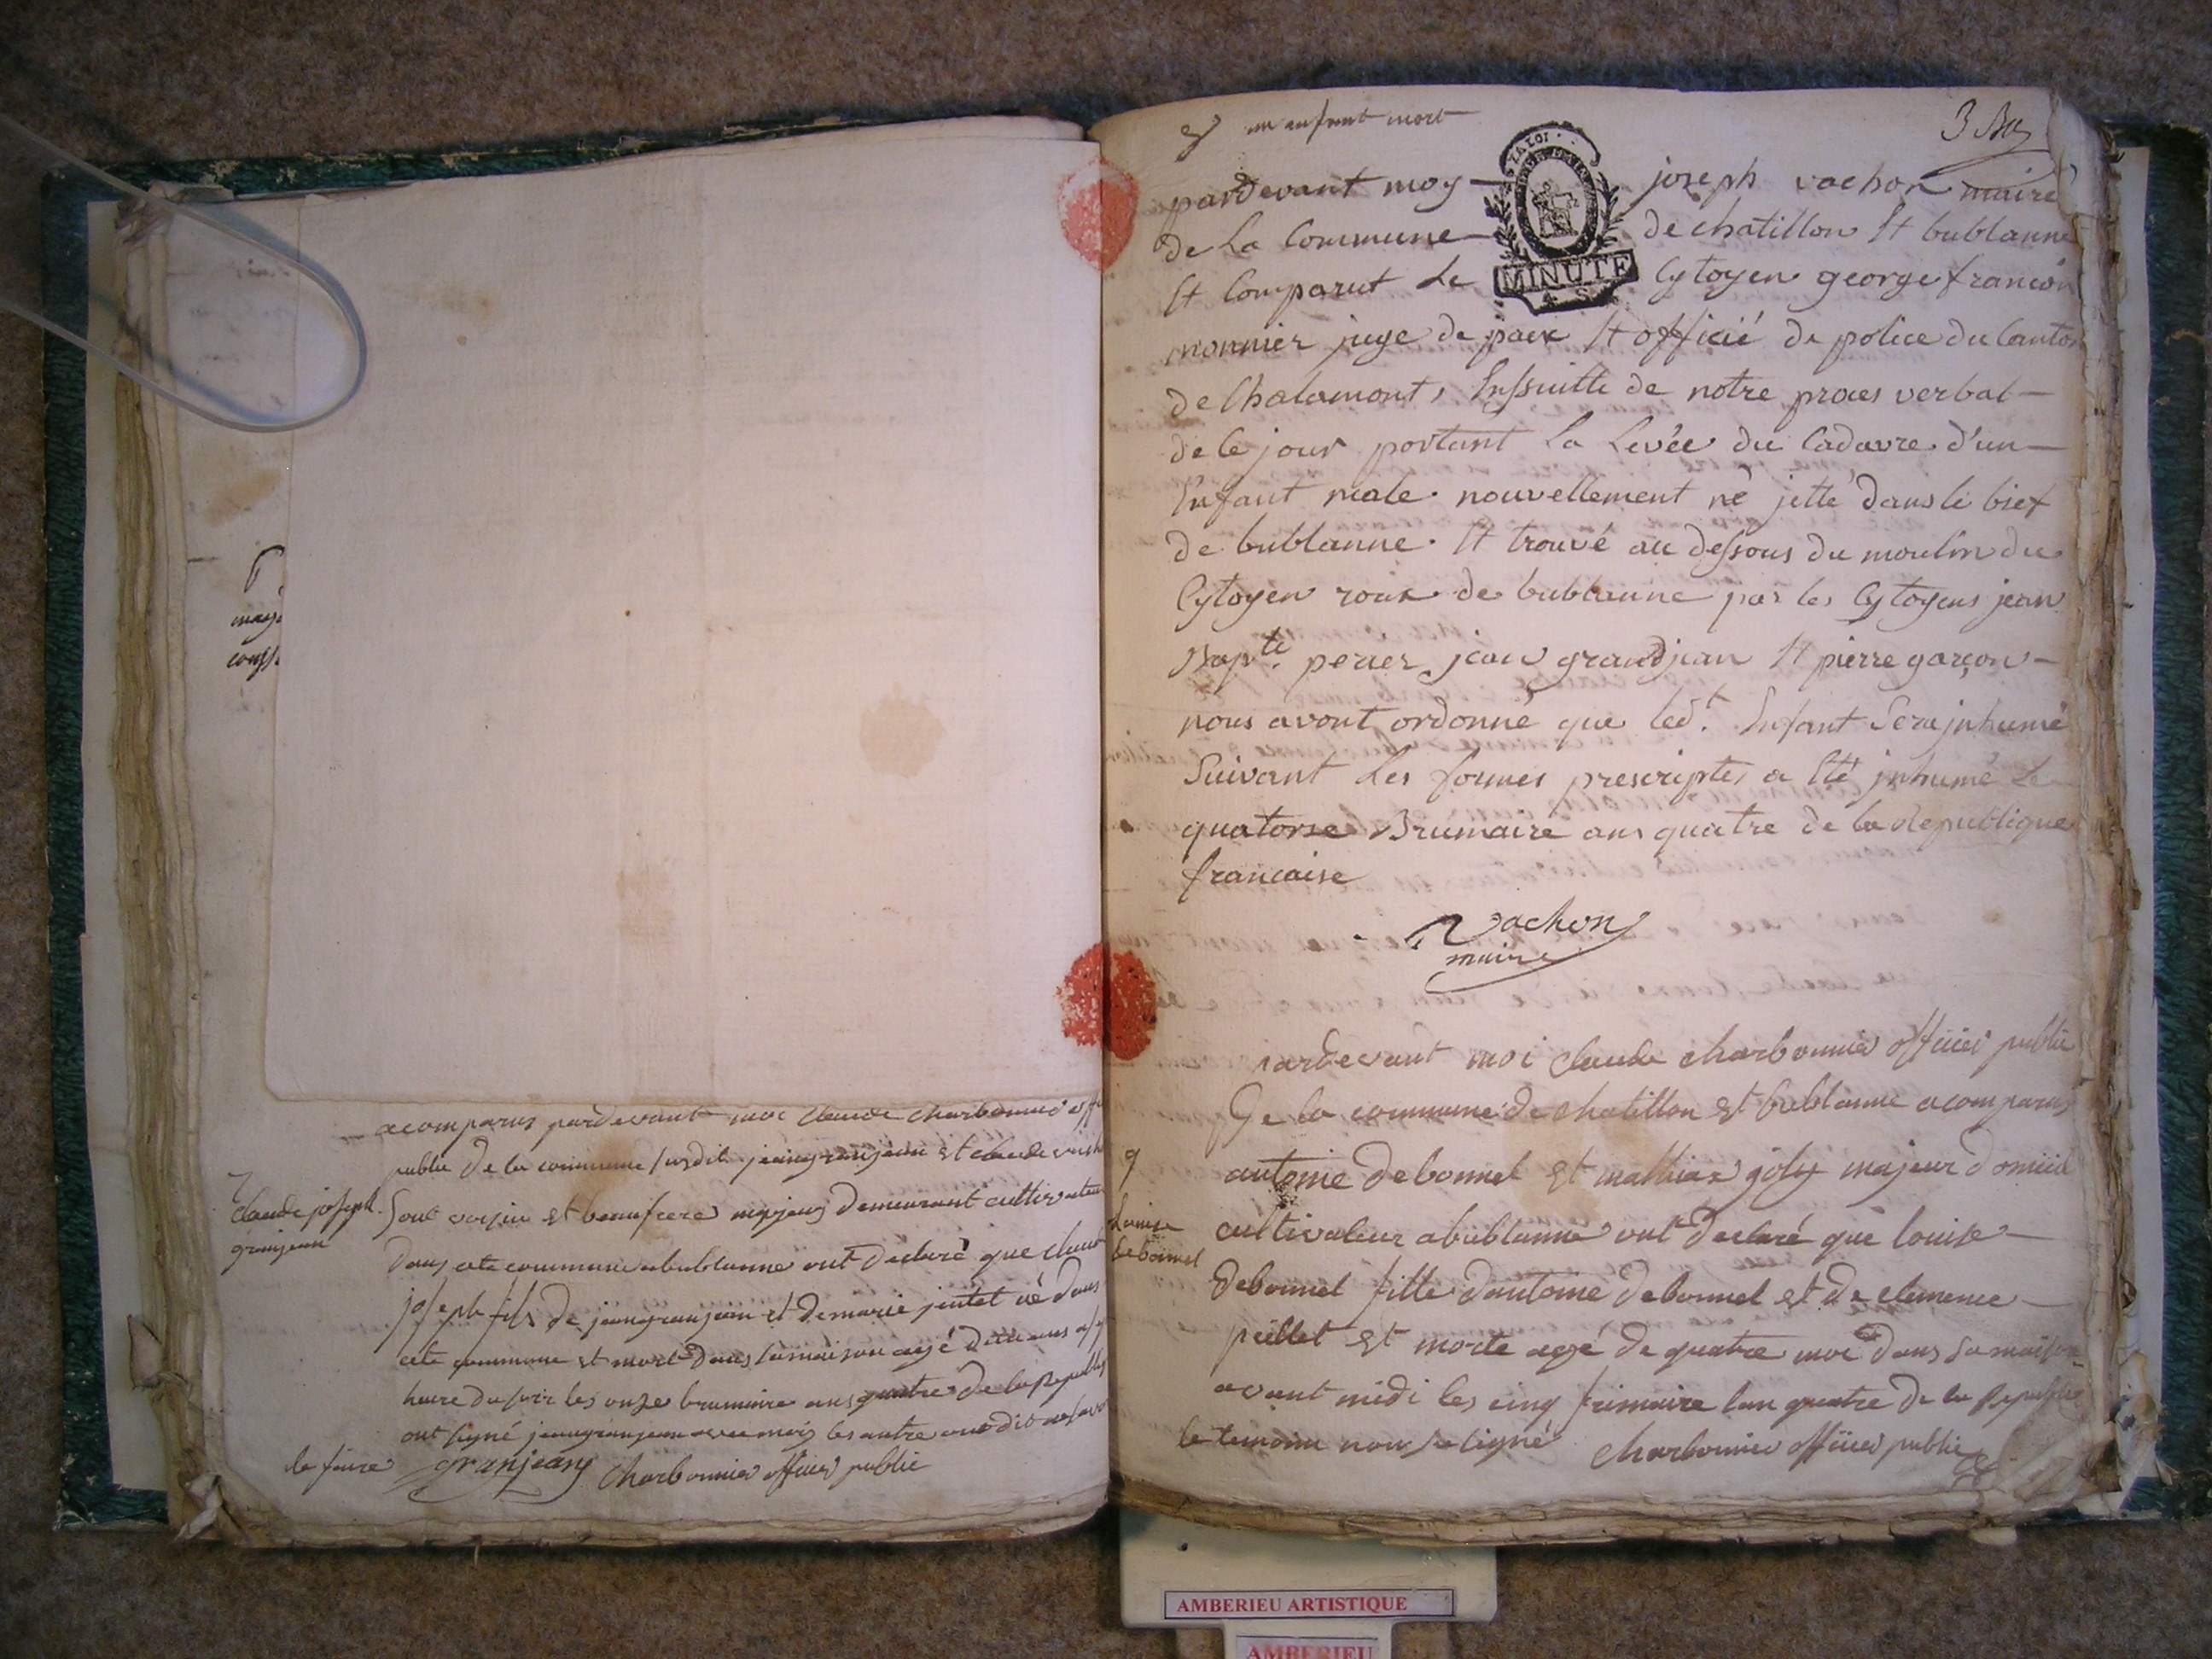 acomparus pardevant moi claude charbonnier
public de la commune susdit jeangranjean et claude
7
claude joseph
granjean
sont voisin et beaufrere majeurs demeurant cultivateur
dans cete commune abublanne ont declaré que claude
joseph fils de jeangranjean et de marie jantet né dans
cete commune et mort dans samaison agé
heure du soir les onze brumaire ans quatre de la republique
ont signé jeangranjean avec moy les autre ont dit ne savoir
le faire granjean charbonnier officier public
may
8 un enfant mort
pardevant moy joseph vachon maire
de la Commune de chatillon Et bublanne
Et Comparut Le Cytoyen george francon
monnier juge de paix Et officié de police du Canton
de Chalamont, Enssuitte de notre proces verbal
de ce jour portant la Levée du Cadavre d'un
Enfant male nouvellement né jetté dans le bief
de bublanne Et trouvé au dessous du moulin du
Cytoyen roux de bublanne par les Cytoyens jean
Bapte perier jean grandjean Et pierre garçon
nous avont ordonné que ledt Enfant Sera jnhumé
Suivant Les formes prescriptes a Eté jnhumé Le
quatorse Brumaire ans quatre de la republique
francaise
Vachon
maire
MINUTE
pardevant moi claude charbonnier officier public
De la commune de chatillon et bublanne acomparus
9
Louise
debonnel
antoine debonnel et mathias joly majeur domicilié
cultivateur abublanne ont declaré que louise
debonnel fille dantoine debonnel et de clemence
pillet et morte agé de quatre moi dans sa maison
avant midi les cinq frimaire lan quatre de la Republique
le temoins non signé charbonnier officier public
AMBERIEU ARTISTIQUE
AMBERIEU